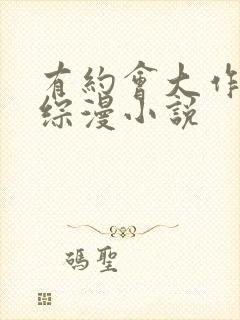 有約會大作
綜漫小說
瑪聖